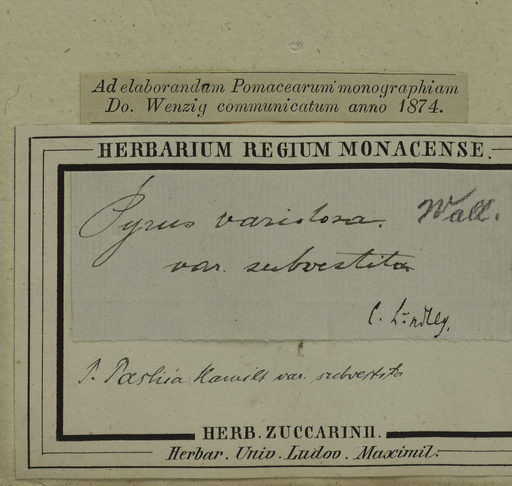 Ad elaborandam Pomacearum monographiam
Do. Wenzig communicatum anno 1874.
HERBARIUM REGIUM MONACENSE.
Pyrus variolosa. Wall.
var. subvestita
C. Lindley.
P. Pashia Hamilt var. subvestita
HERB. ZUCCARINII.
Herbar. Univ. Ludov. Maximil.